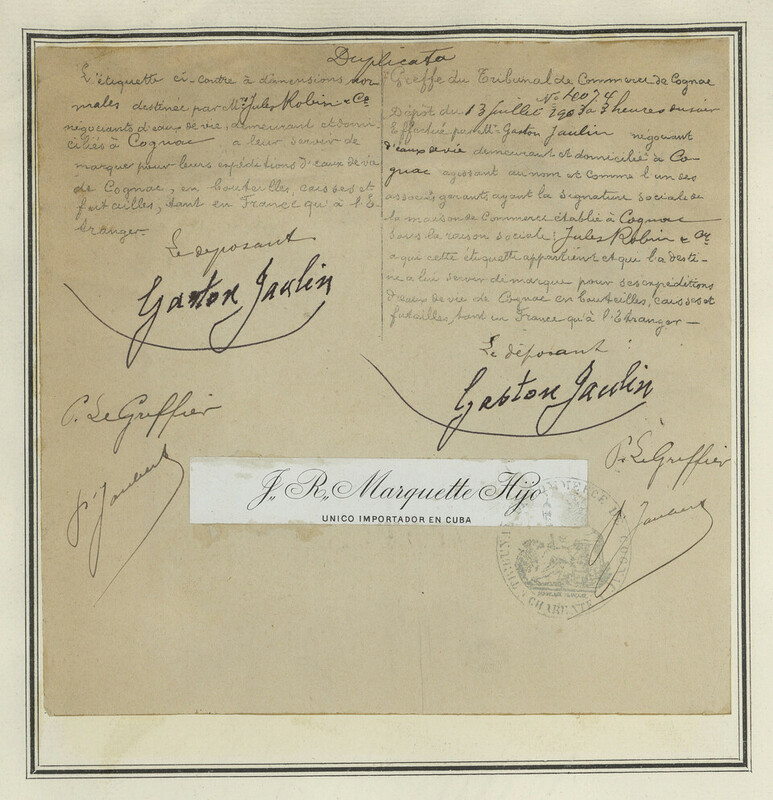 Duplicata
L'étiquette ci-contre à dimensions nor-
males destinée par Mrs Jules Robin & Co
négociants d'eaux de vie, demeurant et domi-
ciliés à Cognac a leur servir de
marque pour leurs expéditions d'eaux de vie
de Cognac, en bouteilles, caisses et
futailles, tant en France qu'à l'E-
tranger.
Le déposant
Gaston Jaulin
P. Le Greffier
Greffe du Tribunal de Commerce de Cognac
No 4074
Dépôt du 13 juillet 1903 à 3 heures du soir
Effectué par Mr Gaston Jaulin négociant
d'eaux de vie demeurant et domicilié à Co-
gnac agissant au nom et comme l'un des
associés gérants ayant la signature sociale de
la maison de Commerce établie à Cognac
sous la raison sociale: Jules Robin & Cie
a qui cette étiquette appartient et qui la desti-
ne a lui servir de marque pour ses expéditions
d'eaux de vie de Cognac en bouteilles, caisses et
futailles, tant en France qu'à l'Etranger —
Le déposant
Gaston Jaulin
P. Le Greffier
J. R. Marquette Hijo
UNICO IMPORTADOR EN CUBA
TRIBUNAL DE COMMERCE DE COGNAC
CHARENTE